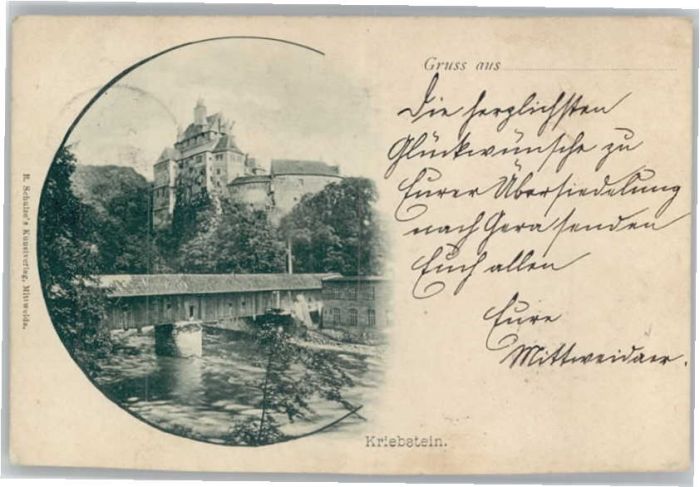 Gruss aus
Die herzlichsten
Glückwünsche zu
Eurer Übersiedelung
nach Gera senden
Euch allen
Eure
Mittweidaer.
Kriebstein.
R. Schulze's Kunstverlag, Mittweida.